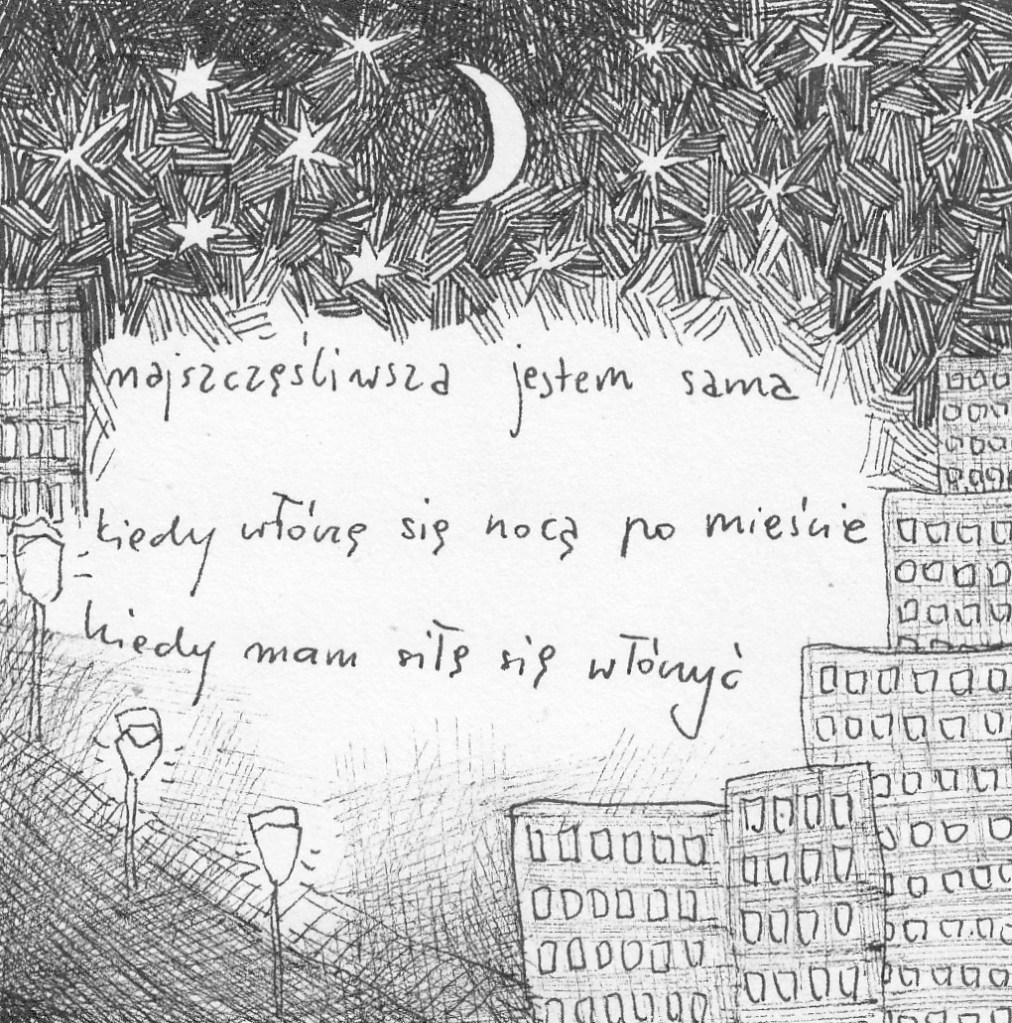 najszczęśliwsza jestem sama
kiedy włóczę się nocą po mieście
kiedy mam siłę się włóczyć